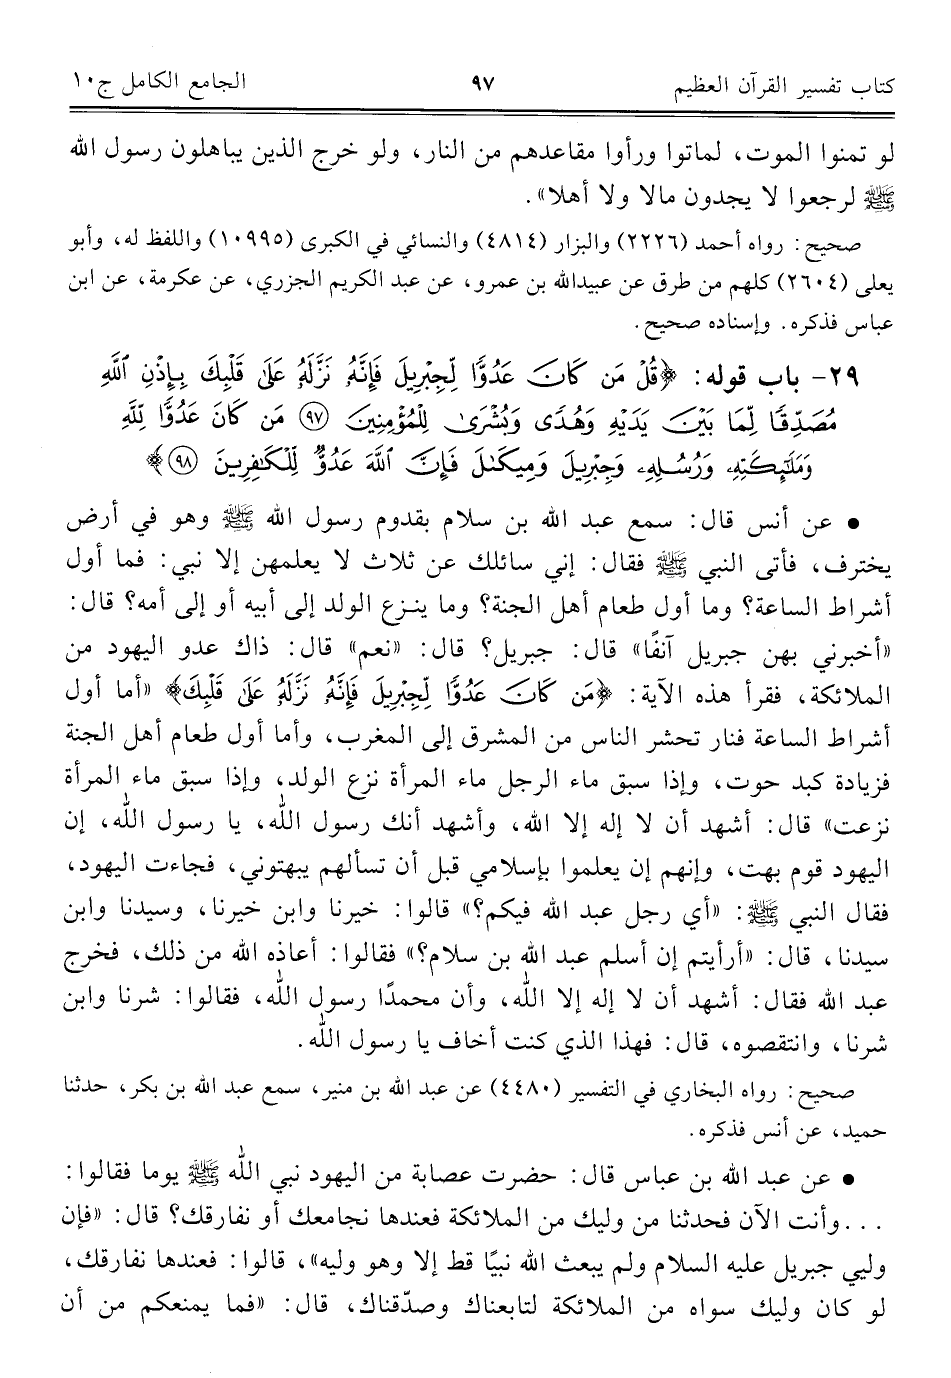 كتاب تفسير القرآن العظيم ٩٧ الجامع الكامل ج١٠
لو تمنوا الموت، لماتوا ورأوا مقاعدهم من النار، ولو خرج الذين يباهلون رسول الله
ﷺ لرجعوا لا يجدون مالا ولا أهلا».
صحيح: رواه أحمد (٢٢٢٦) والبزار (٤٨١٤) والنسائي في الكبرى (١٠٩٩٥) واللفظ له، وأبو
يعلى (٢٦٠٤) كلهم من طرق عن عبيدالله بن عمرو، عن عبد الكريم الجزري، عن عكرمة، عن ابن
عباس فذكره. وإسناده صحيح.
٢٩- باب قوله: ﴿قُلْ مَن كَانَ عَدُوًّا لِّجِبْرِيلَ فَإِنَّهُۥ نَزَّلَهُۥ عَلَىٰ قَلْبِكَ بِإِذْنِ ٱللَّهِ
مُصَدِّقًا لِّمَا بَيْنَ يَدَيْهِ وَهُدًى وَبُشْرَىٰ لِلْمُؤْمِنِينَ ٩٧ مَن كَانَ عَدُوًّا لِّلَّهِ
وَمَلَٰٓئِكَتِهِۦ وَرُسُلِهِۦ وَجِبْرِيلَ وَمِيكَىٰلَ فَإِنَّ ٱللَّهَ عَدُوٌّ لِّلْكَٰفِرِينَ ٩٨﴾
• عن أنس قال: سمع عبد الله بن سلام بقدوم رسول الله ﷺ وهو في أرض
يخترف، فأتى النبي ﷺ فقال: إني سائلك عن ثلاث لا يعلمهن إلا نبي: فما أول
أشراط الساعة؟ وما أول طعام أهل الجنة؟ وما ينـزع الولد إلى أبيه أو إلى أمه؟ قال:
«أخبرني بهن جبريل آنفًا» قال: جبريل؟ قال: «نعم» قال: ذاك عدو اليهود من
الملائكة، فقرأ هذه الآية: ﴿مَن كَانَ عَدُوًّا لِّجِبْرِيلَ فَإِنَّهُۥ نَزَّلَهُۥ عَلَىٰ قَلْبِكَ﴾ «أما أول
أشراط الساعة فنار تحشر الناس من المشرق إلى المغرب، وأما أول طعام أهل الجنة
فزيادة كبد حوت، وإذا سبق ماء الرجل ماء المرأة نزع الولد، وإذا سبق ماء المرأة
نزعت» قال: أشهد أن لا إله إلا الله، وأشهد أنك رسول الله، يا رسول الله، إن
اليهود قوم بهت، وإنهم إن يعلموا بإسلامي قبل أن تسألهم يبهتوني، فجاءت اليهود،
فقال النبي ﷺ: «أي رجل عبد الله فيكم؟» قالوا: خيرنا وابن خيرنا، وسيدنا وابن
سيدنا، قال: «أرأيتم إن أسلم عبد الله بن سلام؟» فقالوا: أعاذه الله من ذلك، فخرج
عبد الله فقال: أشهد أن لا إله إلا الله، وأن محمدًا رسول الله، فقالوا: شرنا وابن
شرنا، وانتقصوه، قال: فهذا الذي كنت أخاف يا رسول الله.
صحيح: رواه البخاري في التفسير (٤٤٨٠) عن عبد الله بن منير، سمع عبد الله بن بكر، حدثنا
حميد، عن أنس فذكره.
• عن عبد الله بن عباس قال: حضرت عصابة من اليهود نبي الله ﷺ يوما فقالوا:
...وأنت الآن فحدثنا من وليك من الملائكة فعندها نجامعك أو نفارقك؟ قال: «فإن
وليي جبريل عليه السلام ولم يبعث الله نبيًا قط إلا وهو وليه»، قالوا: فعندها نفارقك،
لو كان وليك سواه من الملائكة لتابعناك وصدّقناك، قال: «فما يمنعكم من أن